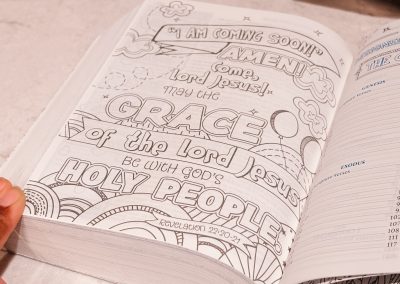 "I AM COMING SOON!"
AMEN!
Come,
Lord Jesus!
may the
GRACE
of the Lord Jesus
BE WITH GOD'S
HOLY PEOPLE.
Revelation 22:20-21
GENESIS
EXODUS